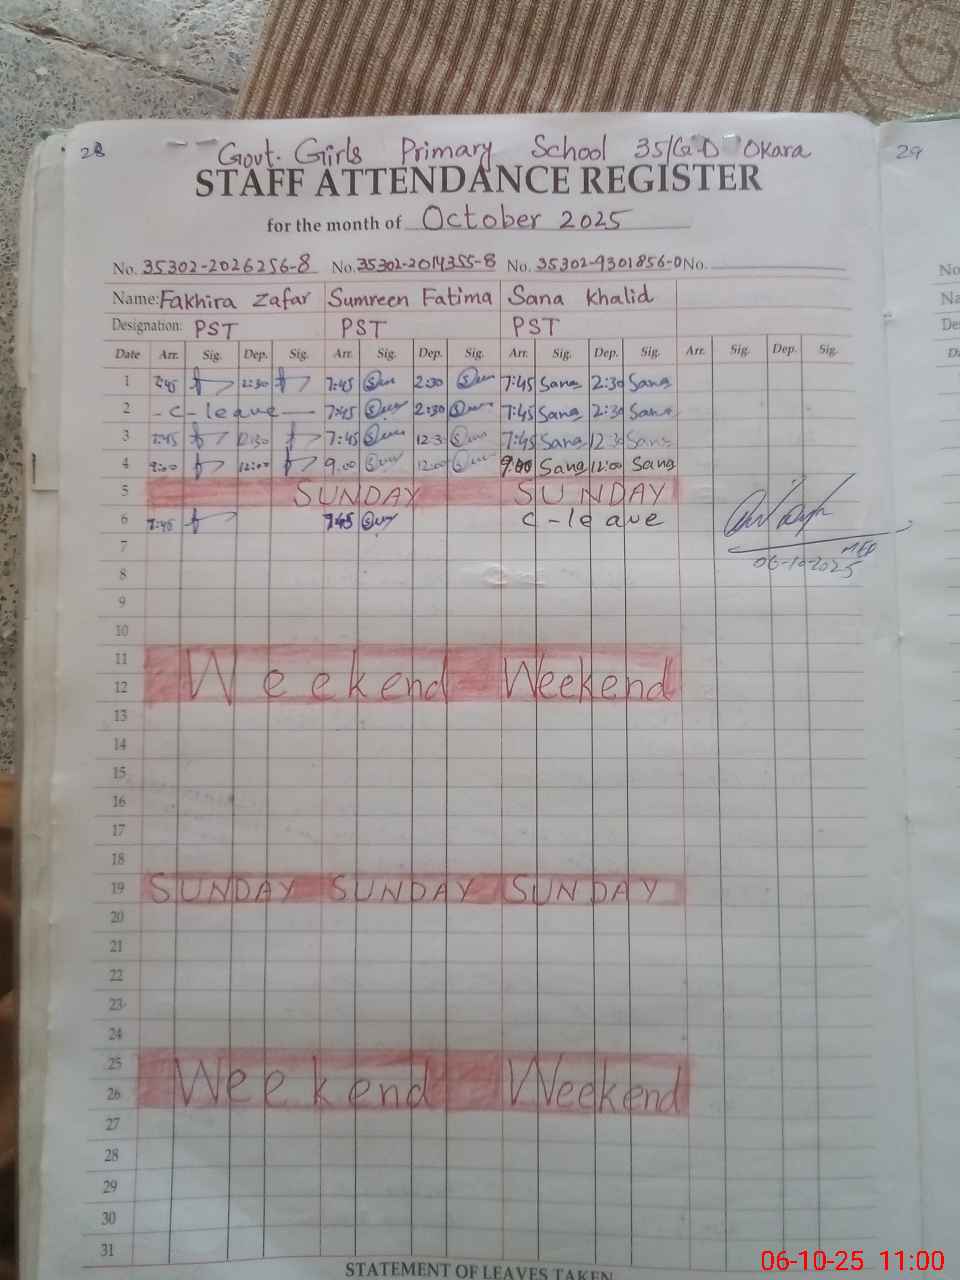 28
29
Govt. Girls Primary School 35/G-D Okara
STAFF ATTENDANCE REGISTER
for the month of October 2025
No. 35302-2026256-8 No. 35302-2014355-8 No. 35302-9301856-0 No.
Name: Fakhira Zafar Sumreen Fatima Sana Khalid
Designation: PST PST PST
Date Arr. Sig. Dep. Sig. Arr. Sig. Dep. Sig. Arr. Sig. Dep. Sig. Arr. Sig. Dep. Sig.
1 7:45 2:30 7:45 2:30 7:45 Sana 2:30 Sana
2 - C - leave - 7:45 2:30 7:45 Sana 2:30 Sana
3 7:45 12:30 7:45 12:30 7:45 Sana 12:30 Sana
4 9:00 12:00 9:00 12:00 9:00 Sana 12:00 Sana
5 SUNDAY SUNDAY
6 7:45 7:45 C - leave
06-10-2025
7
8
9
10
11
Weekend Weekend
12
13
14
15
16
17
18
19 SUNDAY SUNDAY SUNDAY
20
21
22
23
24
25
Weekend Weekend
26
27
28
29
30
31
STATEMENT OF LEAVES TAKEN
No
Na
De
D
06-10-25 11:00